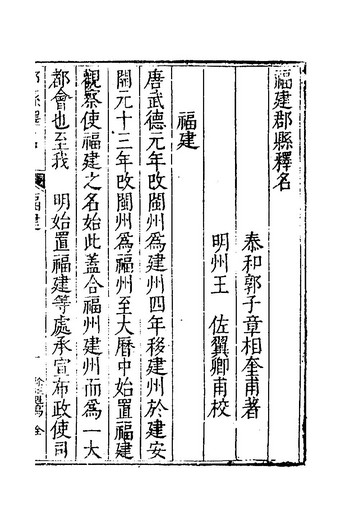 福建郡縣釋名
泰和郭子章相奎甫著
明州王 佐翼卿甫校
福建
唐武德元年改閩州爲建州四年移建州於建安
開元十三年改閩州爲福州至大曆中始置福建
觀察使福建之名始此蓋合福州建州而爲一大
都會也至我 明始置福建等處承宣布政使司
福建
一